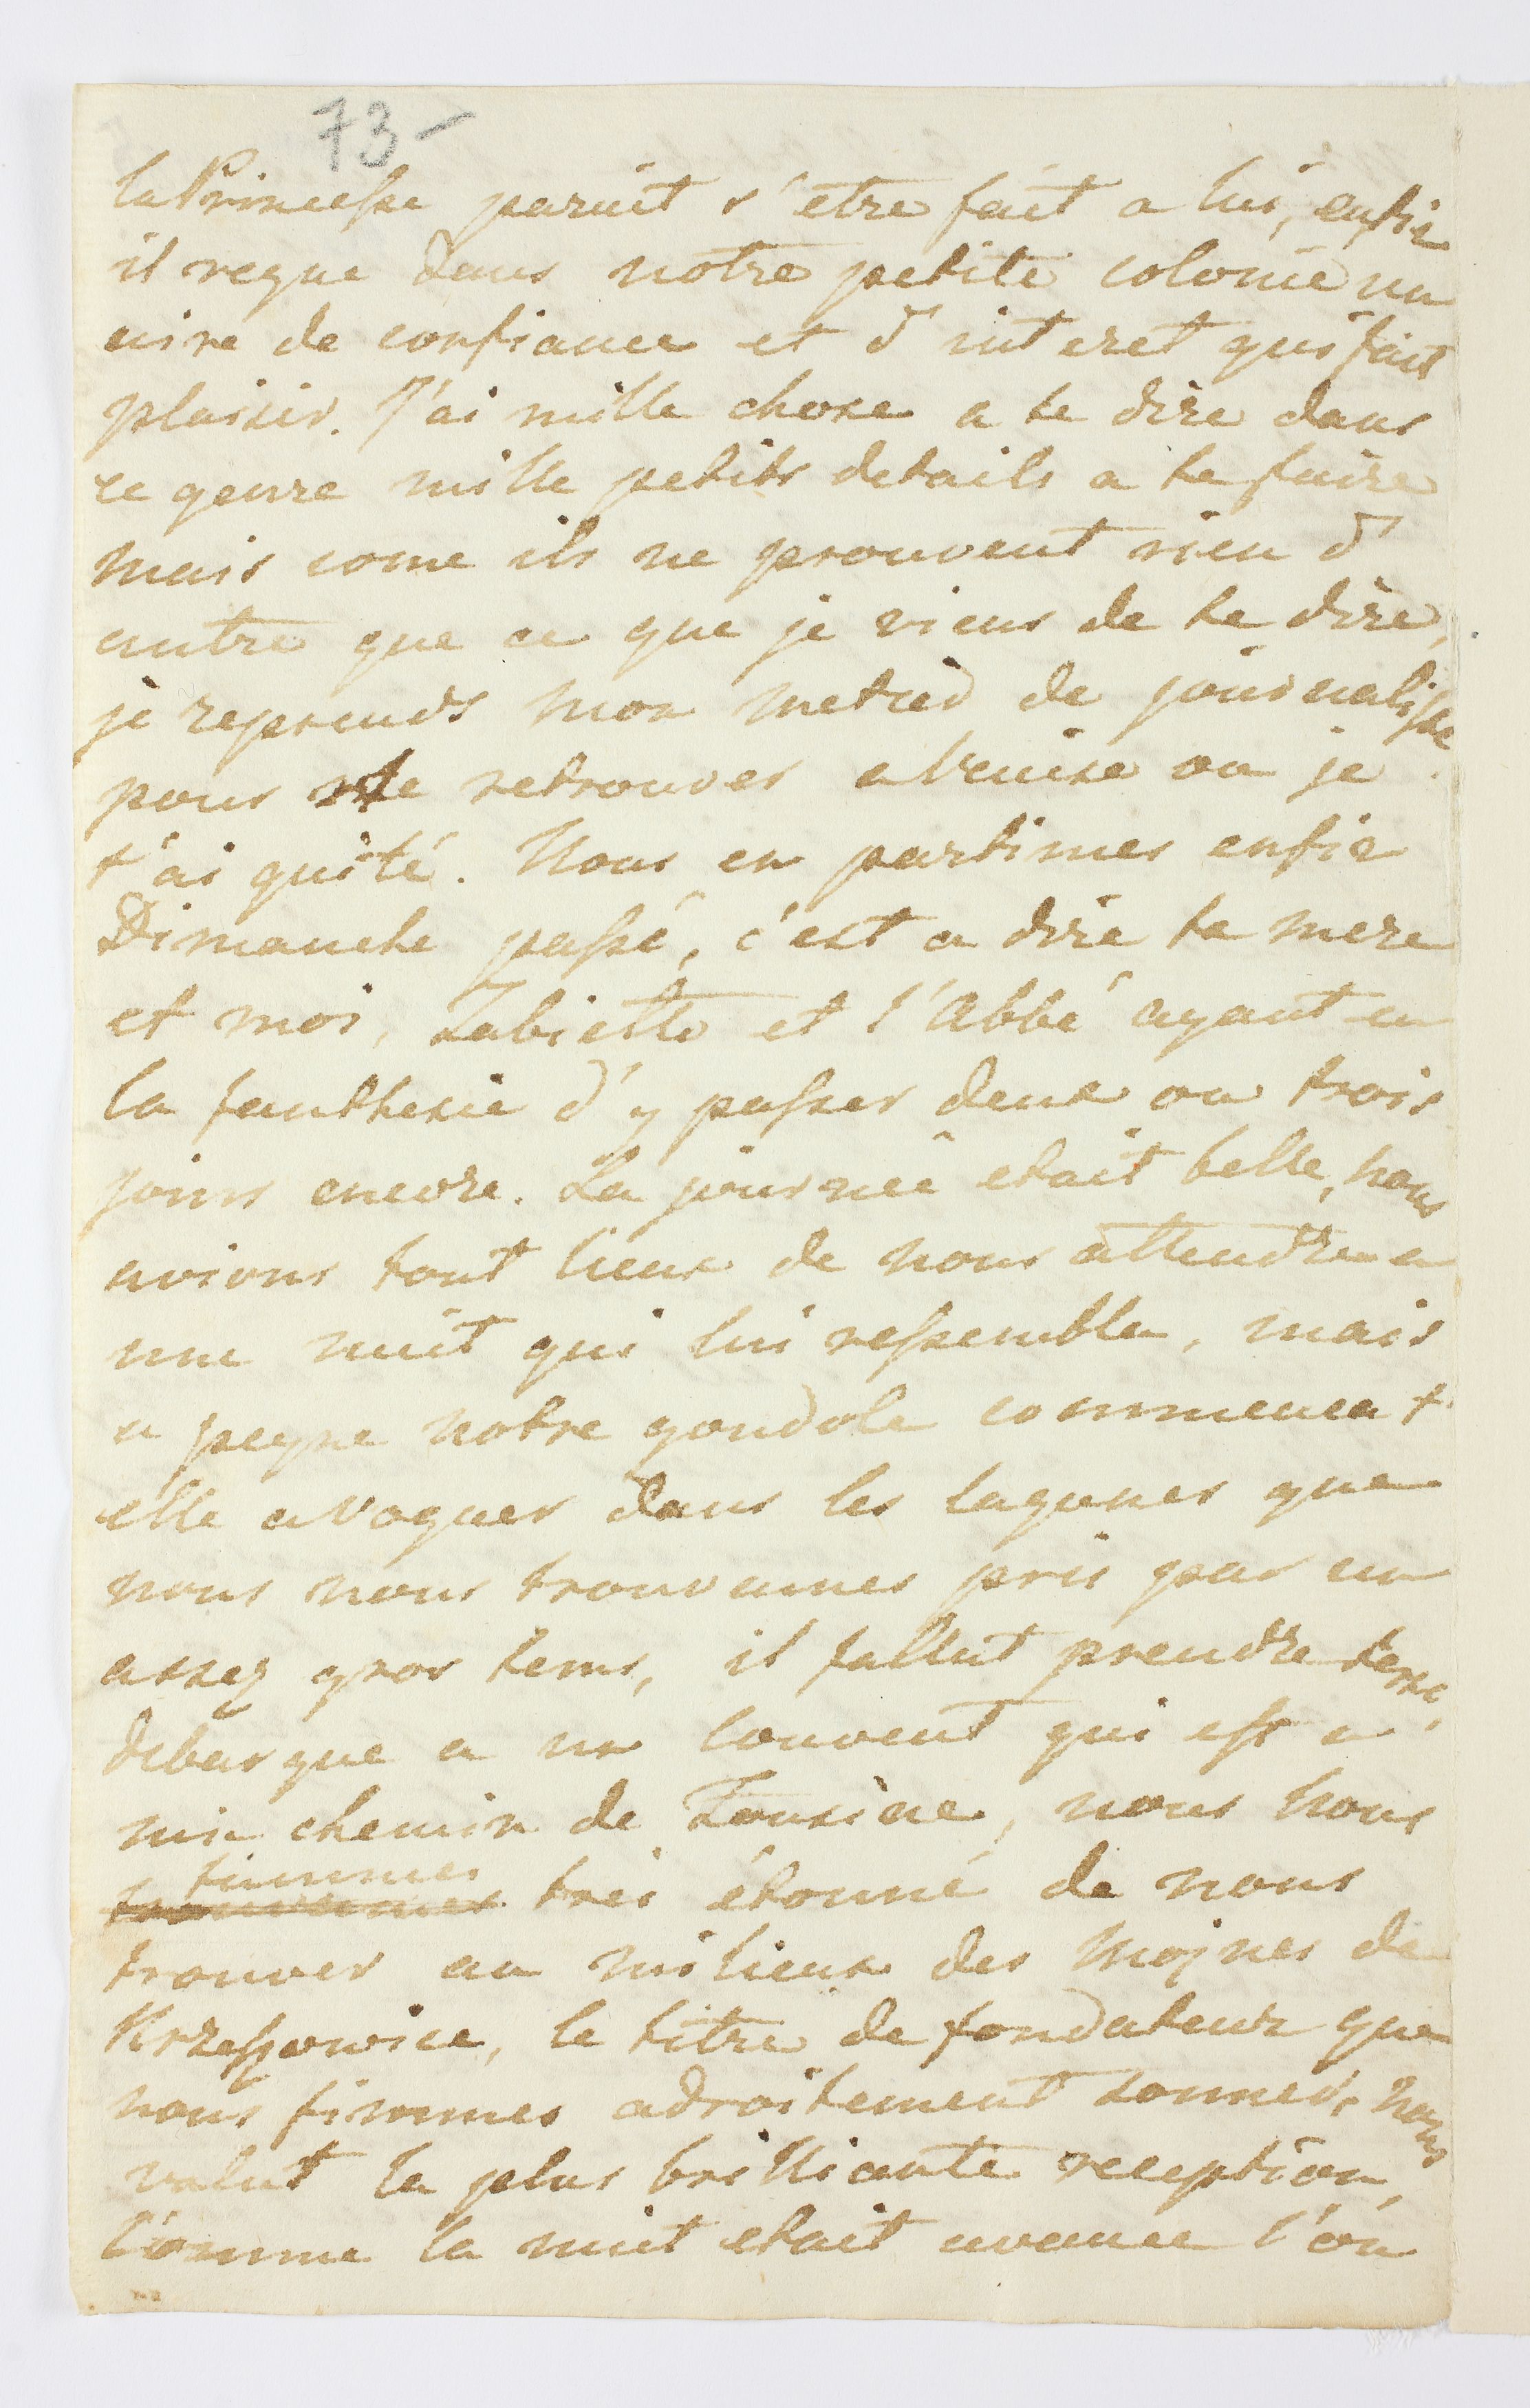 73-
la Princesse parait s'etre fait a lui, enfin
il regne dans notre petite colonie un
aire de confiance et d'interet qui fait
plaisir. J'ai mille chose a te dire dans
ce genre mille petits details a te faire
mais come ils ne prouvent rien d'
autre que ce que je viens de te dire,
je reprends mon metier de journaliste
pour te retrouver a Venise ou je
t'ai quité. Nous en partimes enfin
Dimanche passé, c'est a dire ta mere
et moi, Zabiello et l'Abbé ayant eu
la fanthesie d'y passer deux ou trois
jours encore. La journée etait belle, nous
avions tout lieux de nous attendre a
une nuit qui lui ressemble, mais
a peyne notre gondole commenca t'
elle a voguer dans les lagunes que
nous nous trouvames pris par un
assez gros tems, il fallut prendre terre,
debarque a un Couvent qui est a
mi chemin de Fousine, nous nous
trouvames fummes tres étonné de nous
trouver au milieux des Moines de
Krzeszowice, le titre de fondateur que
nous fimmes adroitement sonner, nous
valut la plus brilliante reception,
Comme la nuit etait avancee l'on